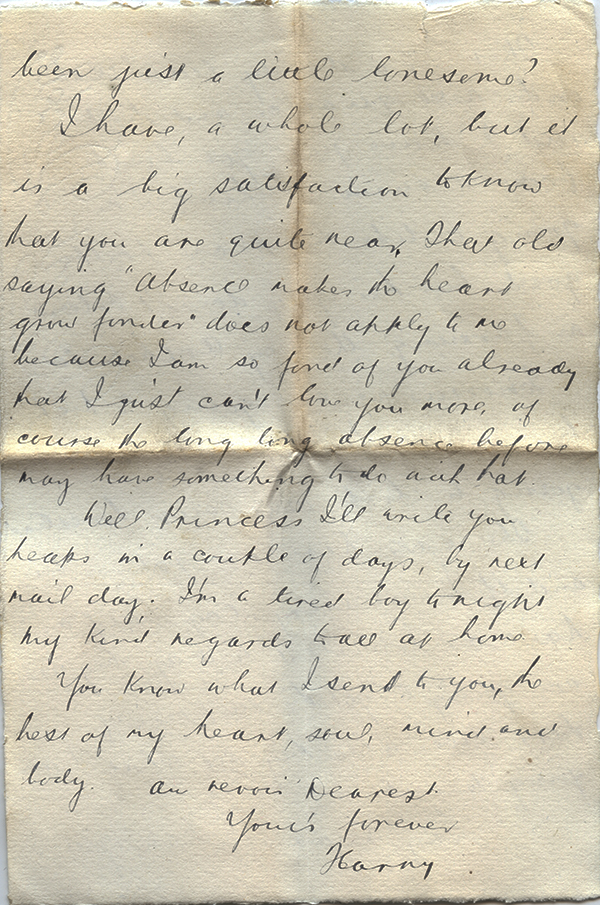 been just a little lonesome?
I have, a whole lot, but it
is a big satisfaction to know
that you are quite near. That old
saying "absence makes the heart
grow fonder" does not apply to me
because I am so fond of you already
that I just can't love you more, of
course the long long absence before
may have something to do with that.
Well Princess I'll write you
heaps in a couple of days, by next
mail day. I'm a tired boy to night
my kind regards to all at home
You know what I send to you, the
best of my heart, soul, mind and
body. au revoir Dearest.
Your's forever
Harry.